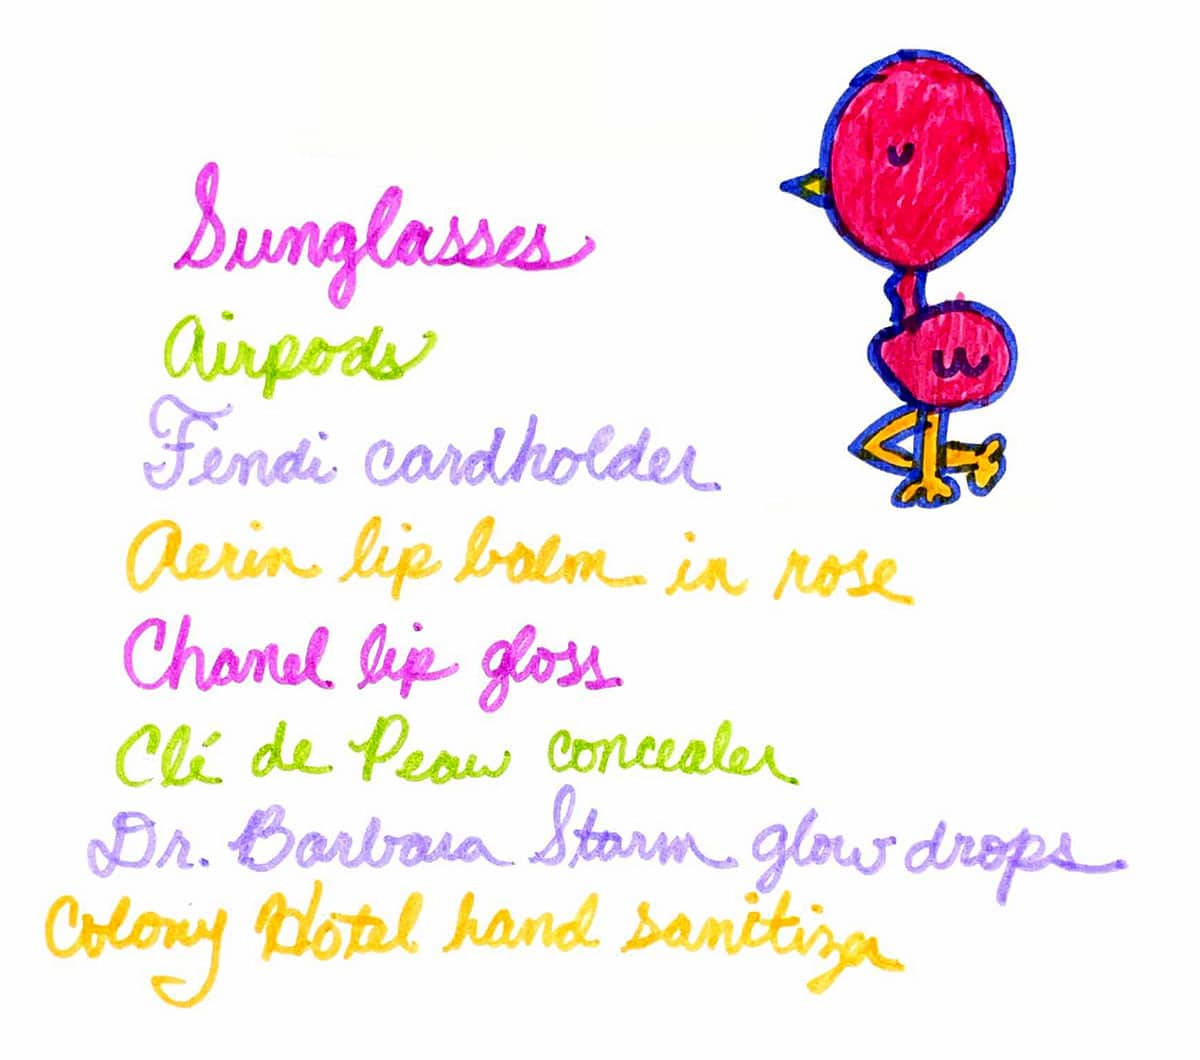 Sunglasses
Airpods
Fendi cardholder
Aerin lip balm in rose
Chanel lip gloss
Clé de Peau concealer
Dr. Barbara Sturm glow drops
Colony Hotel hand sanitizer